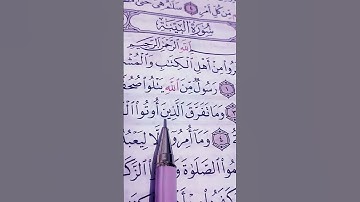 مِّن كُلِّ أَمْرٍ ٤ سَلَٰمٌ هِىَ حَتَّىٰ
سُورَةُ الْبَيِّنَةِ
بِسْمِ اللَّهِ الرَّحْمَٰنِ الرَّحِيمِ
رُوا۟ مِنْ أَهْلِ الْكِتَٰبِ وَالْمُشْ
١ رَسُولٌ مِّنَ اللَّهِ يَتْلُوا۟ صُحُفًا
٣ وَمَا تَفَرَّقَ الَّذِينَ أُوتُوا۟ الْ
٤ وَمَآ أُمِرُوٓا۟ إِلَّا لِيَعْبُدُ
مُوا۟ الصَّلَوٰةَ وَ الزَّكَ